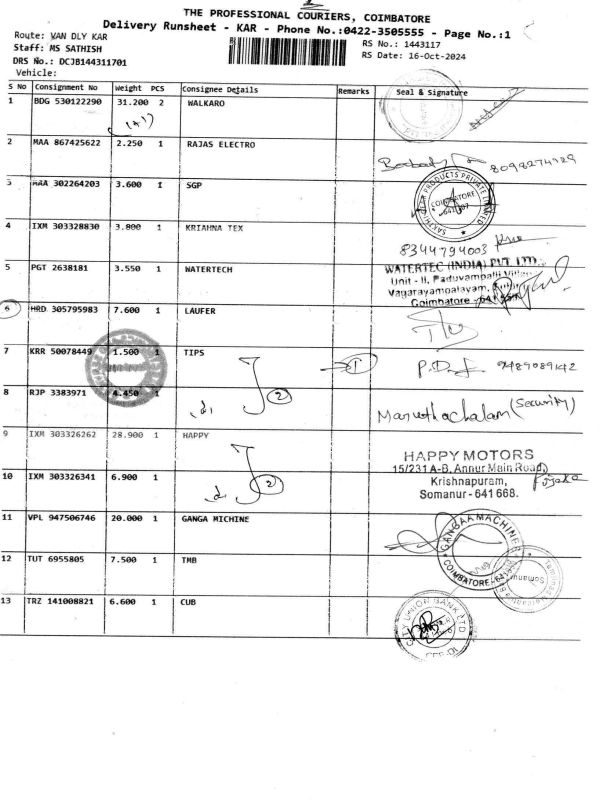 THE PROFESSIONAL COURIERS, COIMBATORE
Delivery Runsheet - KAR - Phone No.:0422-3505555 - Page No.:1
Route: VAN DLY KAR
RS No.: 1443117
Staff: MS SATHISH
RS Date: 16-Oct-2024
DRS No.: DCJB144311701
Vehicle:
S No Consignment No Weight PCS Consignee Details Remarks Seal & Signature
1 BDG 530122290 31.200 2 WALKARO
(1+1)
2 MAA 867425622 2.250 1 RAJAS ELECTRO
8098274129
3 MAA 302264203 3.600 1 SGP
PRODUCTS PRIVATE LIMITED
COIMBATORE
4 IXM 303328830 3.800 1 KRIAHNA TEX
8344794003
5 PGT 2638181 3.550 1 WATERTECH
WATERTEC (INDIA) PVT LTD
Unit - II, Paduvampalli Village
Vagarayampalayam,
Coimbatore - 641
6 HRD 305795983 7.600 1 LAUFER
7 KRR 50078449 1.500 1 TIPS
1
9489089142
8 RJP 3383971 4.450 1
2
Maruthachalam (Security)
9 IXM 303326262 28.900 1 HAPPY
HAPPY MOTORS
15/231 A-B, Annur Main Road,
Krishnapuram,
Somanur - 641 668.
10 IXM 303326341 6.900 1
2
11 VPL 947506746 20.000 1 GANGA MICHINE
COIMBATORE
12 TUT 6955805 7.500 1 TMB
Somanur
13 TRZ 141008821 6.600 1 CUB
CITY UNION BANK LTD